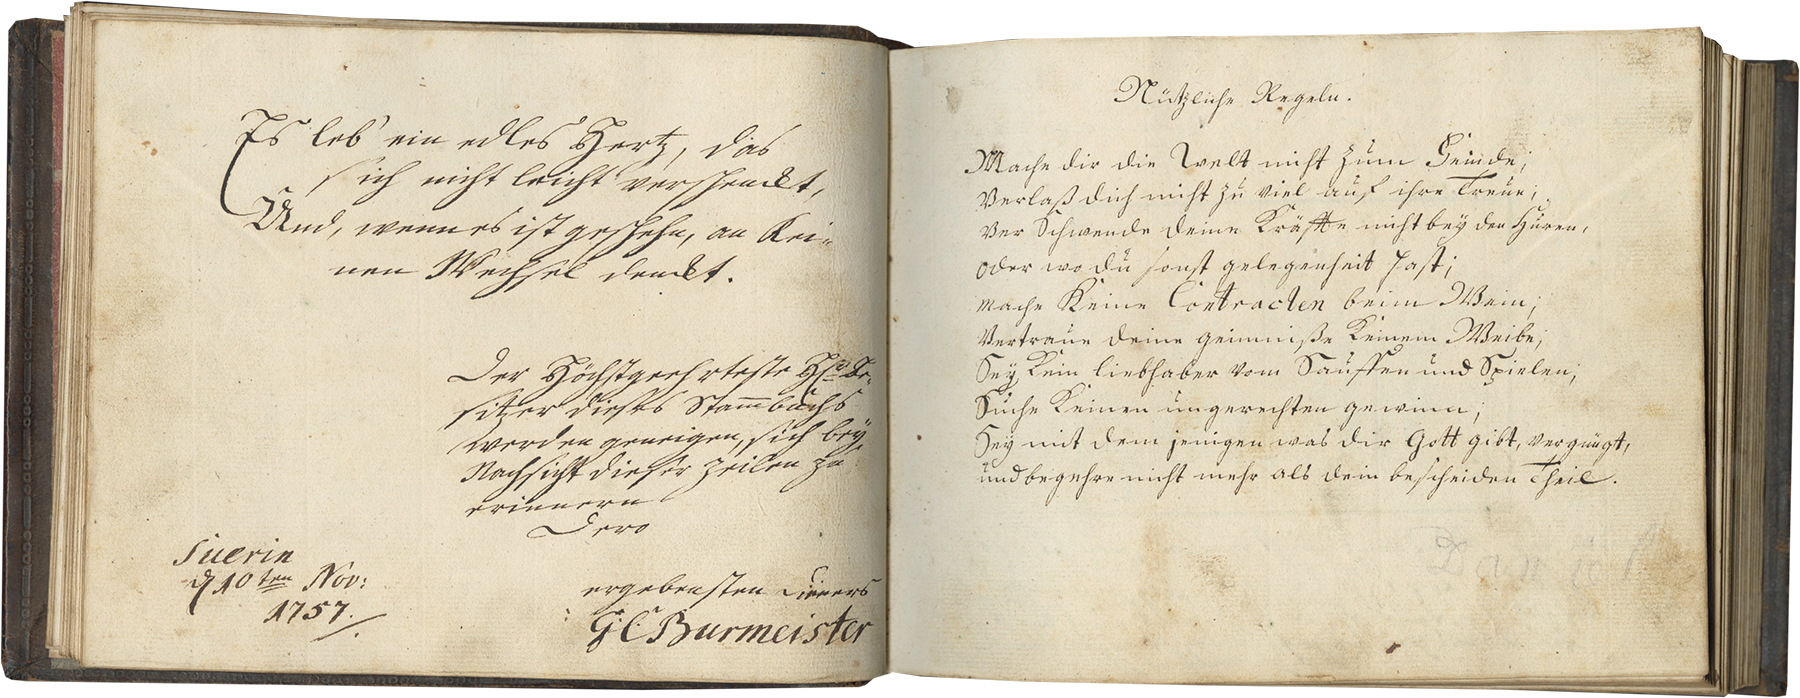 Es leb' ein edles Hertz, das
sich nicht leicht verschenckt,
Und, wenn es ist geschehn, an Kei-
nen Wechsel denckt.
Der Höchstgeehrteste H. Be-
sitzer dieses Stammbuchs
werden geneigen, sich bey
Nachsicht dieser Zeilen zu
erinnern
Dero
Suerin
d 10ten Nov:
1757.
ergebensten Dieners
GC Burmeister
Nützliche Regeln.
Mache dir die Welt nicht zum Feinde;
Verlaß dich nicht zu viel auf ihre Treue;
Ver Schwende deine Kräffte nicht bey den Huren,
oder wo du sonst gelegenheit hast;
mache Keine Contracten beim Wein;
Vertraue deine geimniße Keinem Weibe;
Sey Kein liebhaber vom Sauffen und Spielen;
Suche Keinen ungerechten gewinn;
Sey mit dem jenigen was dir Gott gibt, vergnügt,
und begehre nicht mehr als dein bescheiden Theil.
Daniel